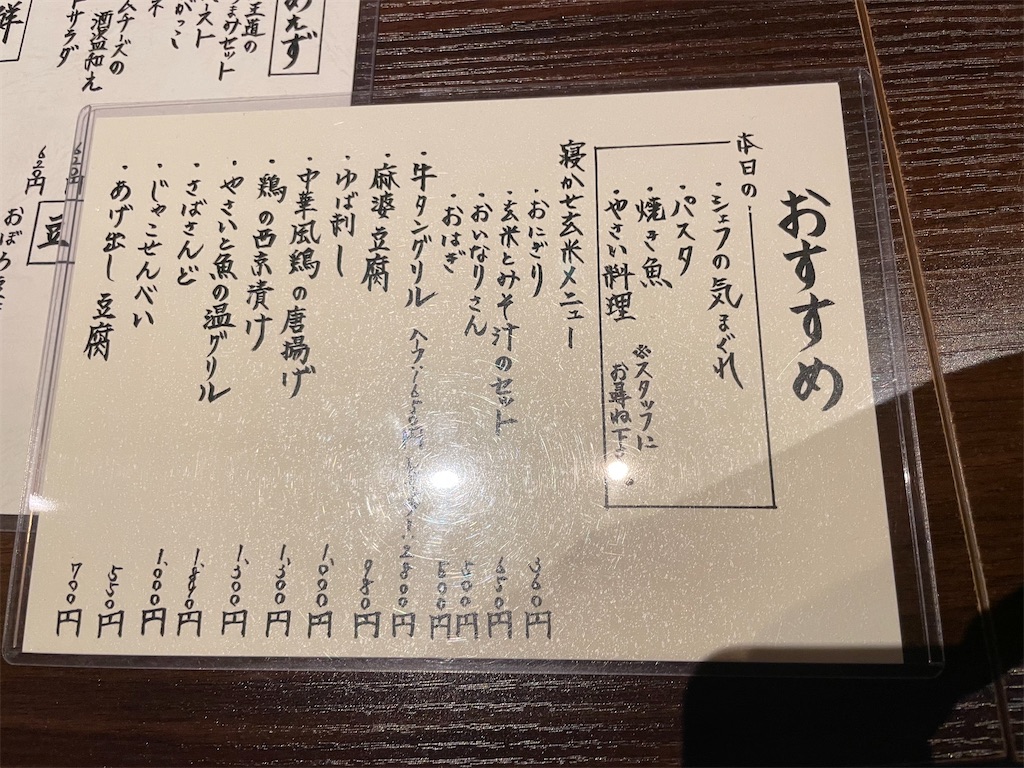 おすすめ
本日の
・シェフの気まぐれ
・パスタ
・焼き魚
・やさい料理
※スタッフに
お尋ね下さい。
寝かせ玄米メニュー
・おにぎり 360円
・玄米とみそ汁のセット 650円
・おいなりさん 500円
・おはぎ 500円
・牛タングリル ハーフ/1650円 2800円
・麻婆豆腐 980円
・ゆば刺し 1,000円
・中華風鶏の唐揚げ 1,300円
・鶏の西京漬け 1,300円
・やさいと魚の温グリル
・さばさんど 1,000円
・じゃこせんべい 550円
・あげ出し豆腐 700円
めぇず
王道の
まみセット
ースト
がっこ
ネ
ムチーズの
酒盗和え
トサラダ
鮮
620円
620円
豆
おぼろ